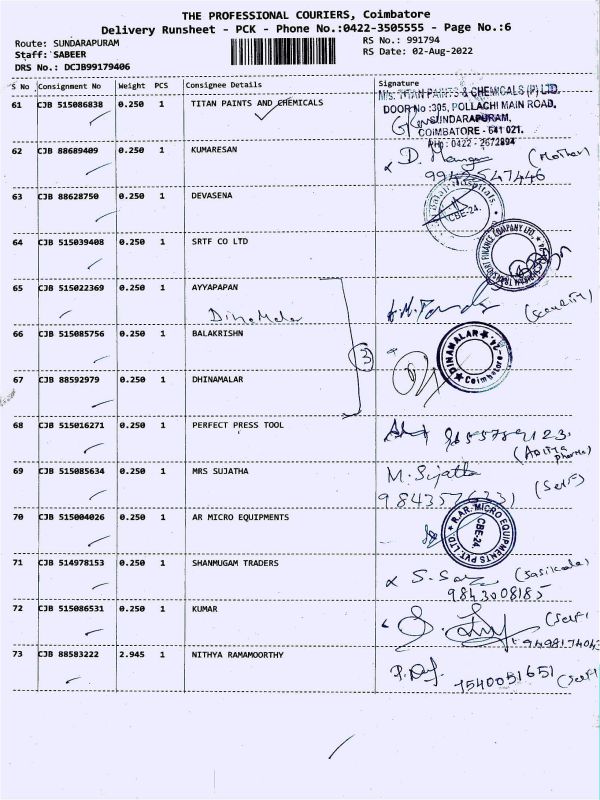 THE PROFESSIONAL COURIERS, Coimbatore
Delivery Runsheet - PCK - Phone No.:0422-3505555 - Page No.:6
Route: SUNDARAPURAM
RS No.: 991794
Staff: SABEER
RS Date: 02-Aug-2022
DRS No.: DCJB99179406
S No Consignment No Weight PCS Consignee Details Signature
61 CJB 515086838 0.250 1 TITAN PAINTS AND CHEMICALS
M/s. TITAN PAINTS & CHEMICALS (P) LTD.
DOOR No :395, POLLACHI MAIN ROAD,
SUNDARAPURAM,
COIMBATORE - 641 021.
Ph : 0422 - 2672894
62 CJB 88689409 0.250 1 KUMARESAN
(Mother)
63 CJB 88628750 0.250 1 DEVASENA
Hospitals
CBE-24.
64 CJB 515039408 0.250 1 SRTF CO LTD
TRANSPORT FINANCE COMPANY LTD.
65 CJB 515022369 0.250 1 AYYAPAPAN
(Security)
Dinamalar
66 CJB 515085756 0.250 1 BALAKRISHN
3
DINAMALAR
Coimbatore
67 CJB 88592979 0.250 1 DHINAMALAR
68 CJB 515016271 0.250 1 PERFECT PRESS TOOL
9655789123.
(Aditya
pharma)
69 CJB 515085634 0.250 1 MRS SUJATHA
M. Sujatha
(Self)
70 CJB 515004026 0.250 1 AR MICRO EQUIPMENTS
R.AR. MICRO EQUIPMENTS PVT. LTD.
CBE-24
71 CJB 514978153 0.250 1 SHANMUGAM TRADERS
(Sasikala)
9843008185
72 CJB 515086531 0.250 1 KUMAR
(Self)
73 CJB 88583222 2.945 1 NITHYA RAMAMOORTHY
7540051651
(Self)